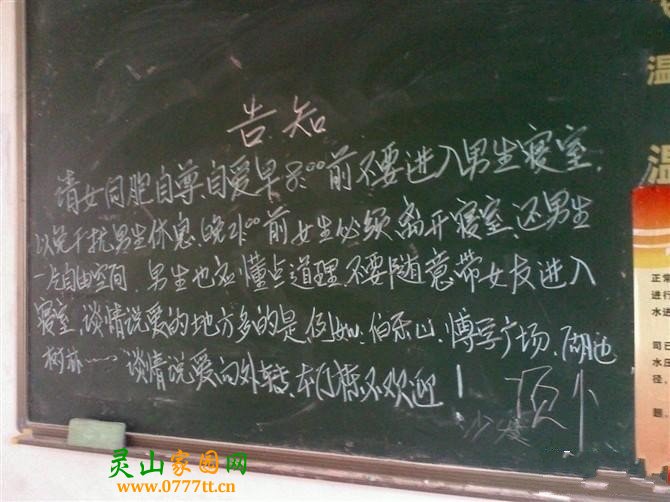 告知
请女同胞自尊、自爱早8:00前不要进入男生寝室，
以免干扰男生休息，晚21:00前女生必须离开寝室，还男生
一片自由空间，男生也应懂点道理，不要随意带女友进入
寝室，谈情说爱的地方多的是，例如：伯乐山、博学广场、湖边
树林……谈情说爱向外转，本门栋不欢迎！
顶个
沙发
温
温
正常
进行
水进
司已
水压
径，
题，
灵山家园网
www.0777tt.cn